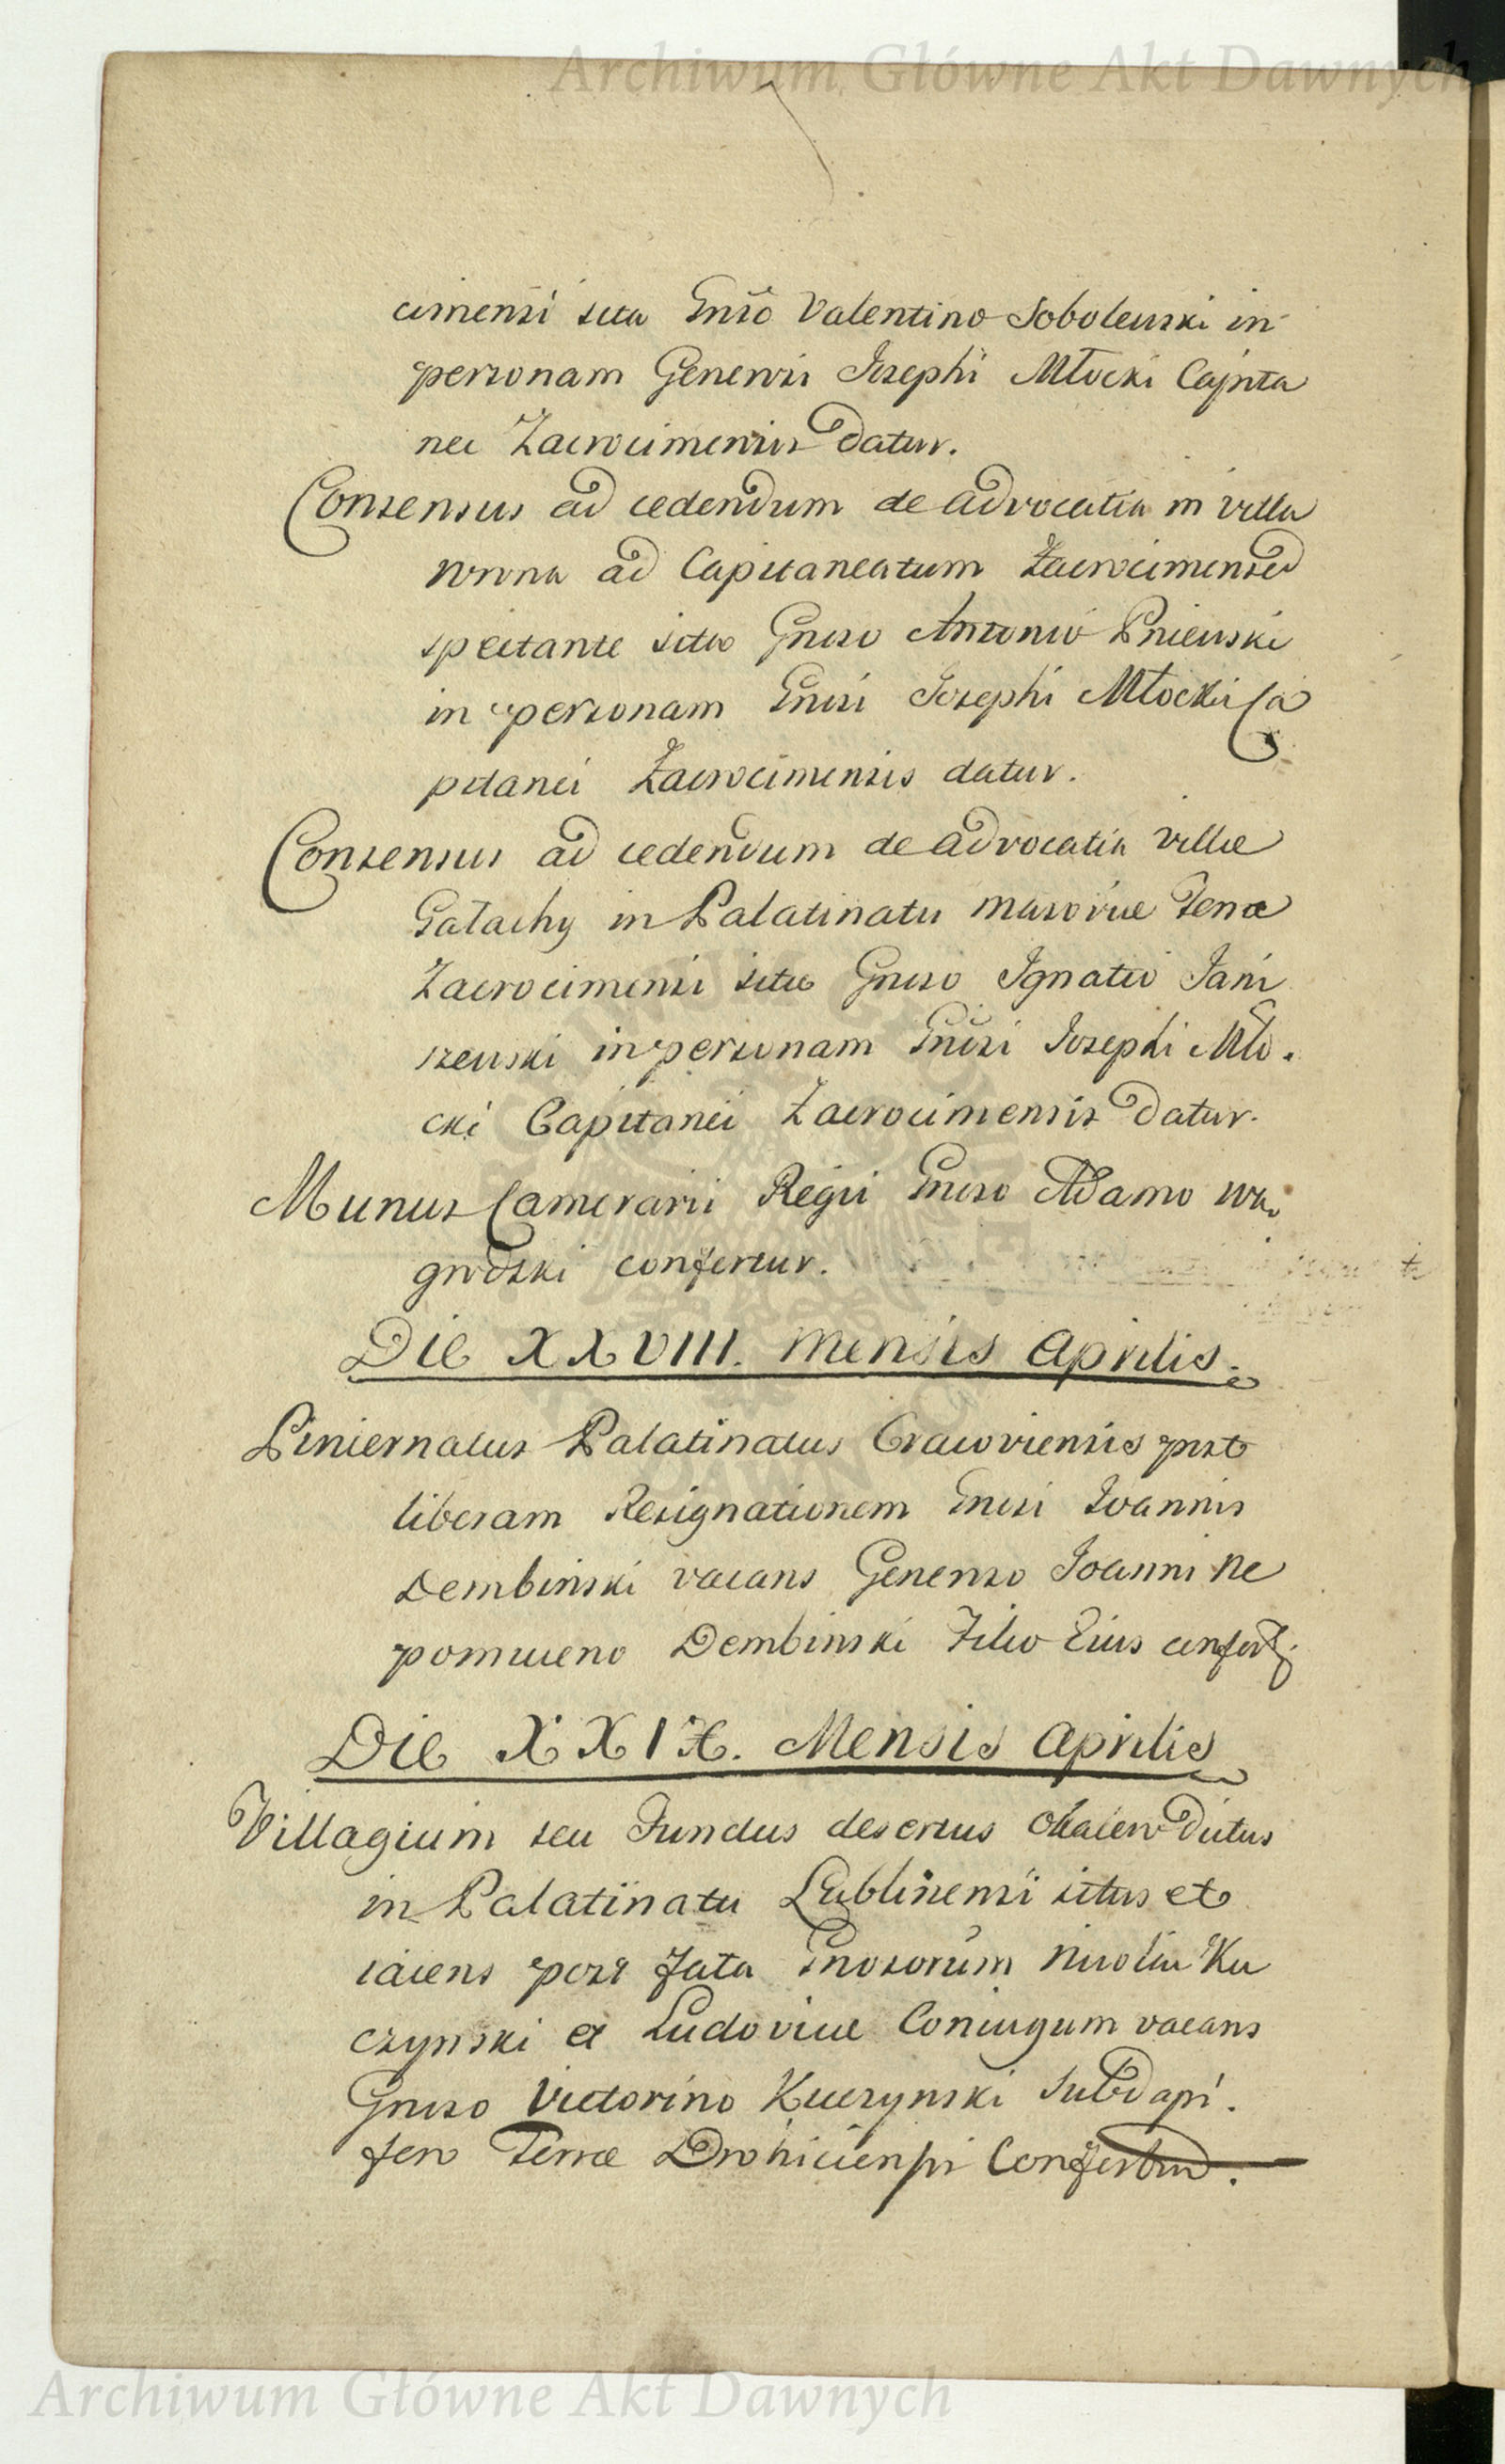 Archiwum Główne Akt Dawnych
cimensi sita Gnso Valentino Sobolewski in
personam Generosi Josephi Młocki Capita
nei Zacrocimensis datur.
Consensus ad cedendum de advocatia in villa
Wrona ad Capitaneatum Zacrocimensem
spectante sita Gnoso Antonio Pniewski
in personam Gnosi Josephi Młocki Ca
pitanei Zacrocimensis datur.
Consensus ad cedendum de advocatia villæ
Gałachy in Palatinatu Masoviæ Terræ
Zacrocimensi sitæ Gnoso Ignatio Jani
szewski in personam Gnosi Josephi Mło.
cki Capitanei Zacrocimensis datur.
Munus Camerarii Regii Gnoso Adamo Wa
grodzki confertur.
Die XXVIII. Mensis Aprilis.
Piniernatus Palatinatus Cracoviensis post
liberam Resignationem Gnosi Joannis
Dembinski vacans Generoso Joanni Ne
pomuceno Dembinski Filio Eius confert
Die XXIX. Mensis Aprilis
Villagium seu Fundus desertus dictus
in Palatinatu Lublinensi situs et
iacens post fata Gnosorum Nicolai Ku
czynski et Ludovicæ Coniugum vacans
Gnoso Victorino Kuczynski Subdapi.
fero Terræ Drohiciensi Confertur.
Archiwum Główne Akt Dawnych